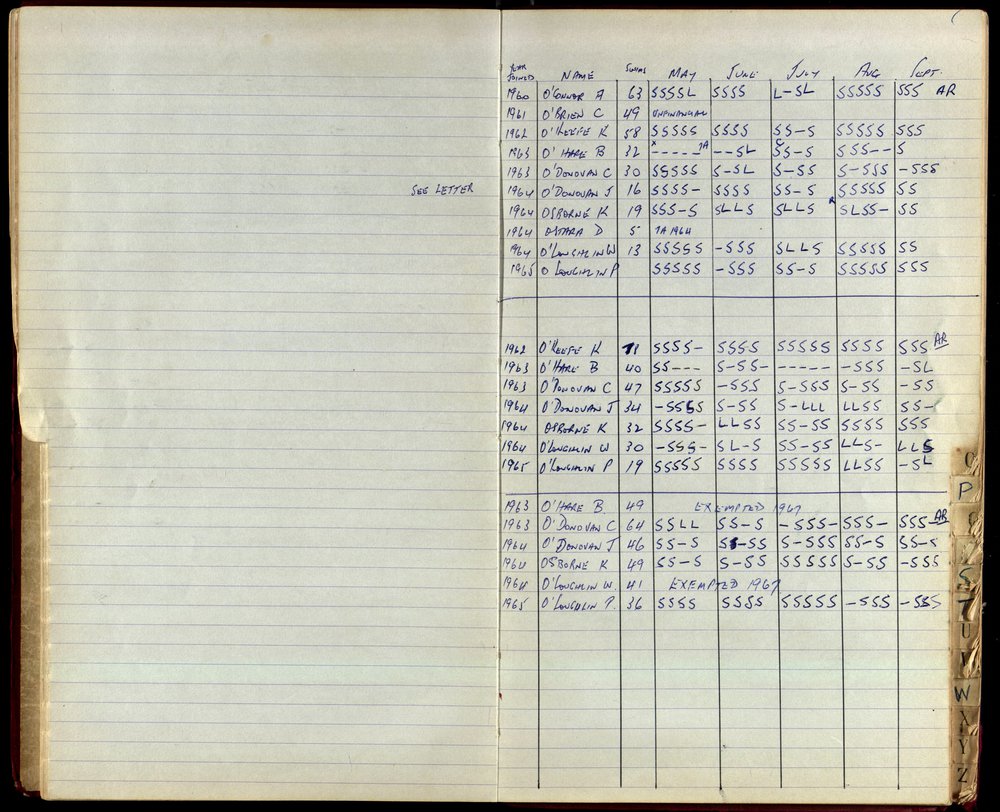 YEAR JOINED NAME SWIMS MAY JUNE JULY AUG SEPT.
1960 O'CONNOR A 63 SSSSL SSSS L-SL SSSSS SSS AR
1961 O'BRIEN C 49 UNFINANCIAL
1962 O'KEEFE K 58 SSSSS SSSS SS-S SSSSS SSS
1963 O'HARE B 32 ----- --SL SS-S SSS-- S
1963 O'DONOVAN C 30 SSSSS S-SL S-SS S-SSS -SSS
SEE LETTER 1964 O'DONOVAN J 16 SSSS- SSSS SS-S SSSSS SS
1964 OSBORNE K 19 SSS-S SLLS SLLS SLSS- SS
1964 OSTARA D 5 TA 1964
1964 O'LOUGHLIN W 13 SSSSS -SSS SLLS SSSSS SS
1965 O'LOUGHLIN P SSSSS -SSS SS-S SSSSS SSS
1962 O'KEEFE K 71 SSSS- SSSS SSSSS SSSS SSS AR
1963 O'HARE B 40 SS--- S-SS- ----- -SSS -SL
1963 O'DONOVAN C 47 SSSSS -SSS S-SSS S-SS -SS
1964 O'DONOVAN J 34 -SSSS S-SS S-LLL LLSS SS-
1964 OSBORNE K 32 SSSS- LLSS SS-SS SSSS SSS
1964 O'LOUGHLIN W 30 -SSS- SL-S SS-SS LLS- LLS
1965 O'LOUGHLIN P 19 SSSSS SSSS SSSSS LLSS -SL
1963 O'HARE B. 49 EXEMPTED 1967
1963 O'DONOVAN C 64 SSLL SS-S -SSS- SSS- SSS- AR
1964 O'DONOVAN J 46 SS-S SS-SS S-SSS SS-S SS-S
1964 OSBORNE K 49 SS-S S-SS SSSSS S-SS -SSS
1964 O'LOUGHLIN W. 41 EXEMPTED 1967
1965 O'LOUGHLIN P. 36 SSSS SSSS SSSSS -SSS -SSS
O
P
S
T
U
V
W
X
Y
Z